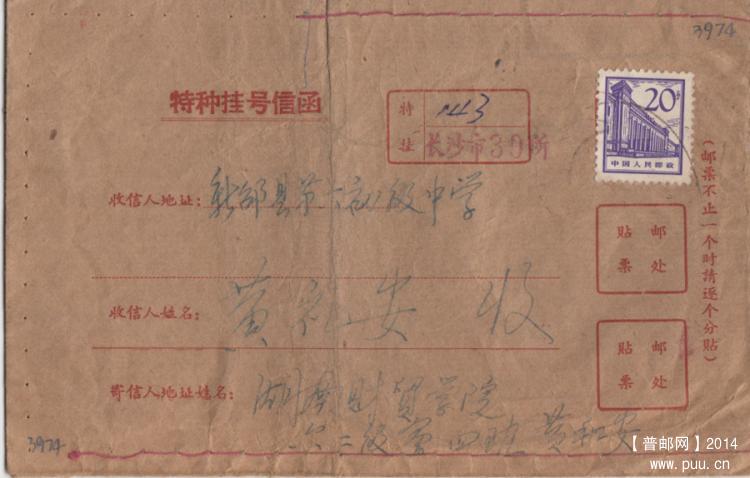 3974
特种挂号信函
特
挂
143
长沙市30所
20分
中国人民邮政
(邮票不止一个时請逐个分贴)
收信人地址:新邵县第 高级中学
贴 邮
票 处
收信人姓名:黄 安 收
贴 邮
票 处
寄信人地址姓名:湖南财贸学院
六二级 四班 黄和安
3974
【普邮网】2014
www.puu.cn